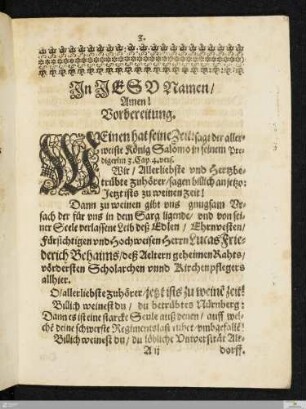 3.
In JESU Namen/
Amen!
Vorbereitung.
WEinen hat seine Zeit: sagt der aller-
weiste König Salomo in seinem Pre-
digerim 3. Cap. 4. vers.
Wir/ Allerliebste vnd Hertzbe-
trübte Zuhörer/ sagen billich an jetzo:
Jetzt ists zu weinen Zeit!
Dann zu weinen gibt vns gnugsam Vr-
sach der für vns in dem Sarg ligende/ vnd von sei-
ner Seele verlassene Leib deß Edlen/ Ehrnvesten/
Fürsichtigen vnd Hochweisen Herrn Lucas Frie-
derich Behaims/ deß Aeltern geheimen Rahts/
vördersten Scholarchen vnnd Kirchenpflegers
allhier.
O/ allerliebste Zuhörer/ jetzt ists zu weinē zeit!
Billich weinest du/ du betrübtes Nürnberg:
Dann es ist eine starcke Seule auß denen/ auff wel-
che deine schwerste Regimentslast ruhet/ vmbgefallē!
Billich weinest du/ du löbliche Vniversität Alt-
A ij
dorff.